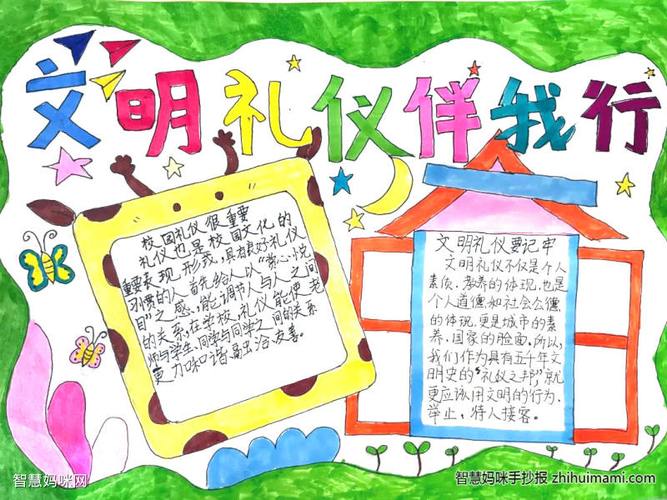 文明礼仪伴我行
校园礼仪很重要
礼仪也是校园文化的
重要表现形我,具有良好礼仪
习惯的人,首先给人以“赏心悦
目”之感,能调节人与人之间
的关系,在学校,礼仪能使老
师与学生,同学与同学之间的关系
更力口味谐易出洽友善。
文明礼仪要记牢
文明礼仪不仅是个人
素质、教养的体现,也是
个人道德和社会公德
的体现.更是城市的素
养、国家的脸面.所以,
我们作为具有五千年文
明史的“礼仪之邦”,就
更应该用文明的行为.
举止,待人接客。
智慧妈咪网
智慧妈咪手抄报 zhihuimami.com